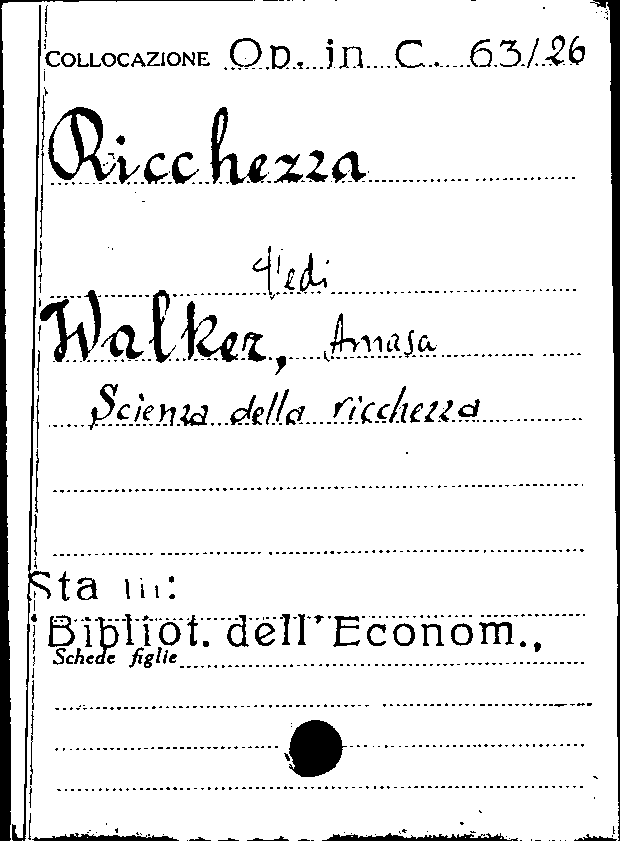 COLLOCAZIONE Op. in C. 63/26
Ricchezza
V'edi
Walker, Amasa
Scienza della ricchezza
Sta in:
Bibliot. dell'Econom.,
Schede figlie